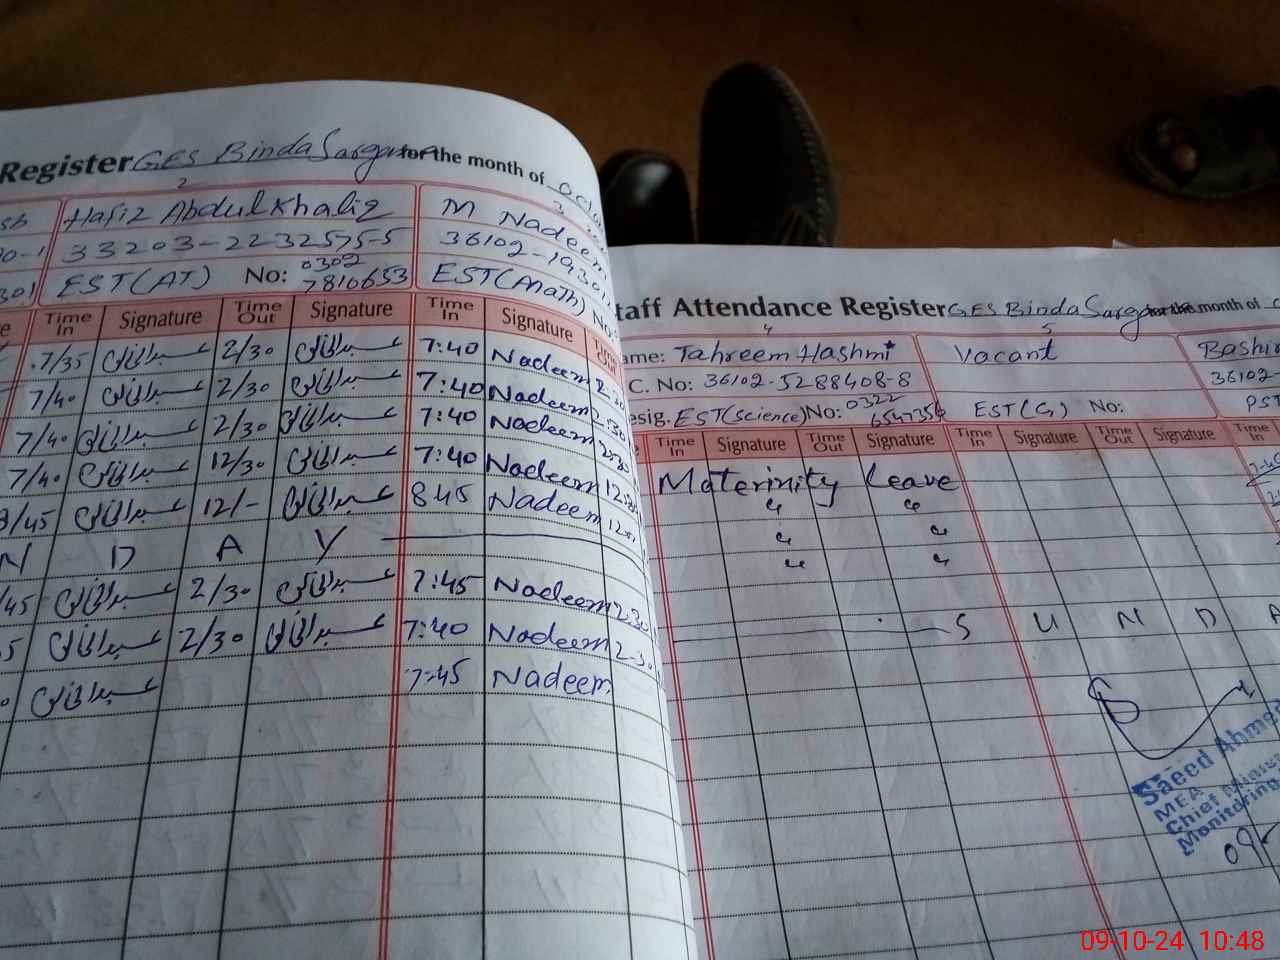 Register GES Binda Sargana for the month of
2
Hafiz Abdul Khaliq
33203-2232575-5
EST(AT) No: 0302
7810653
3
M Nadeem
36102-1930
EST(Math) No:
Time In Signature Time Out Signature Time In Signature
7/35 عبدالخالق 2/30 عبدالخالق 7:40 Nadeem 2:30
7/40 عبدالخالق 2/30 عبدالخالق 7:40 Nadeem 2:30
7/40 عبدالخالق 2/30 عبدالخالق 7:40 Nadeem 2:30
7/40 عبدالخالق 12/30 عبدالخالق 7:40 Nadeem 12:30
8/45 عبدالخالق 12/- عبدالخالق 8 45 Nadeem
N D A Y
/45 عبدالخالق 2/30 عبدالخالق 7:45 Nadeem 2:30
5 عبدالخالق 2/30 عبدالخالق 7:40 Nadeem 2:30
عبدالخالق 7:45 Nadeem
taff Attendance Register GES Binda Sargana for the month of
4
ame: Tahreem Hashmi
C. No: 36102-5288408-8
esig. EST(Science) No: 0322
6547356
5
Vacant
EST(G) No:
Bashir
36102-
PST
Time In Signature Time Out Signature Time In Signature Time Out Signature Time In
Materinity Leave
〃 〃
〃 〃
〃 〃
S U N D A
Saeed Ahme
MEA
Chief Minis
Monitoring
09
09-10-24 10:48